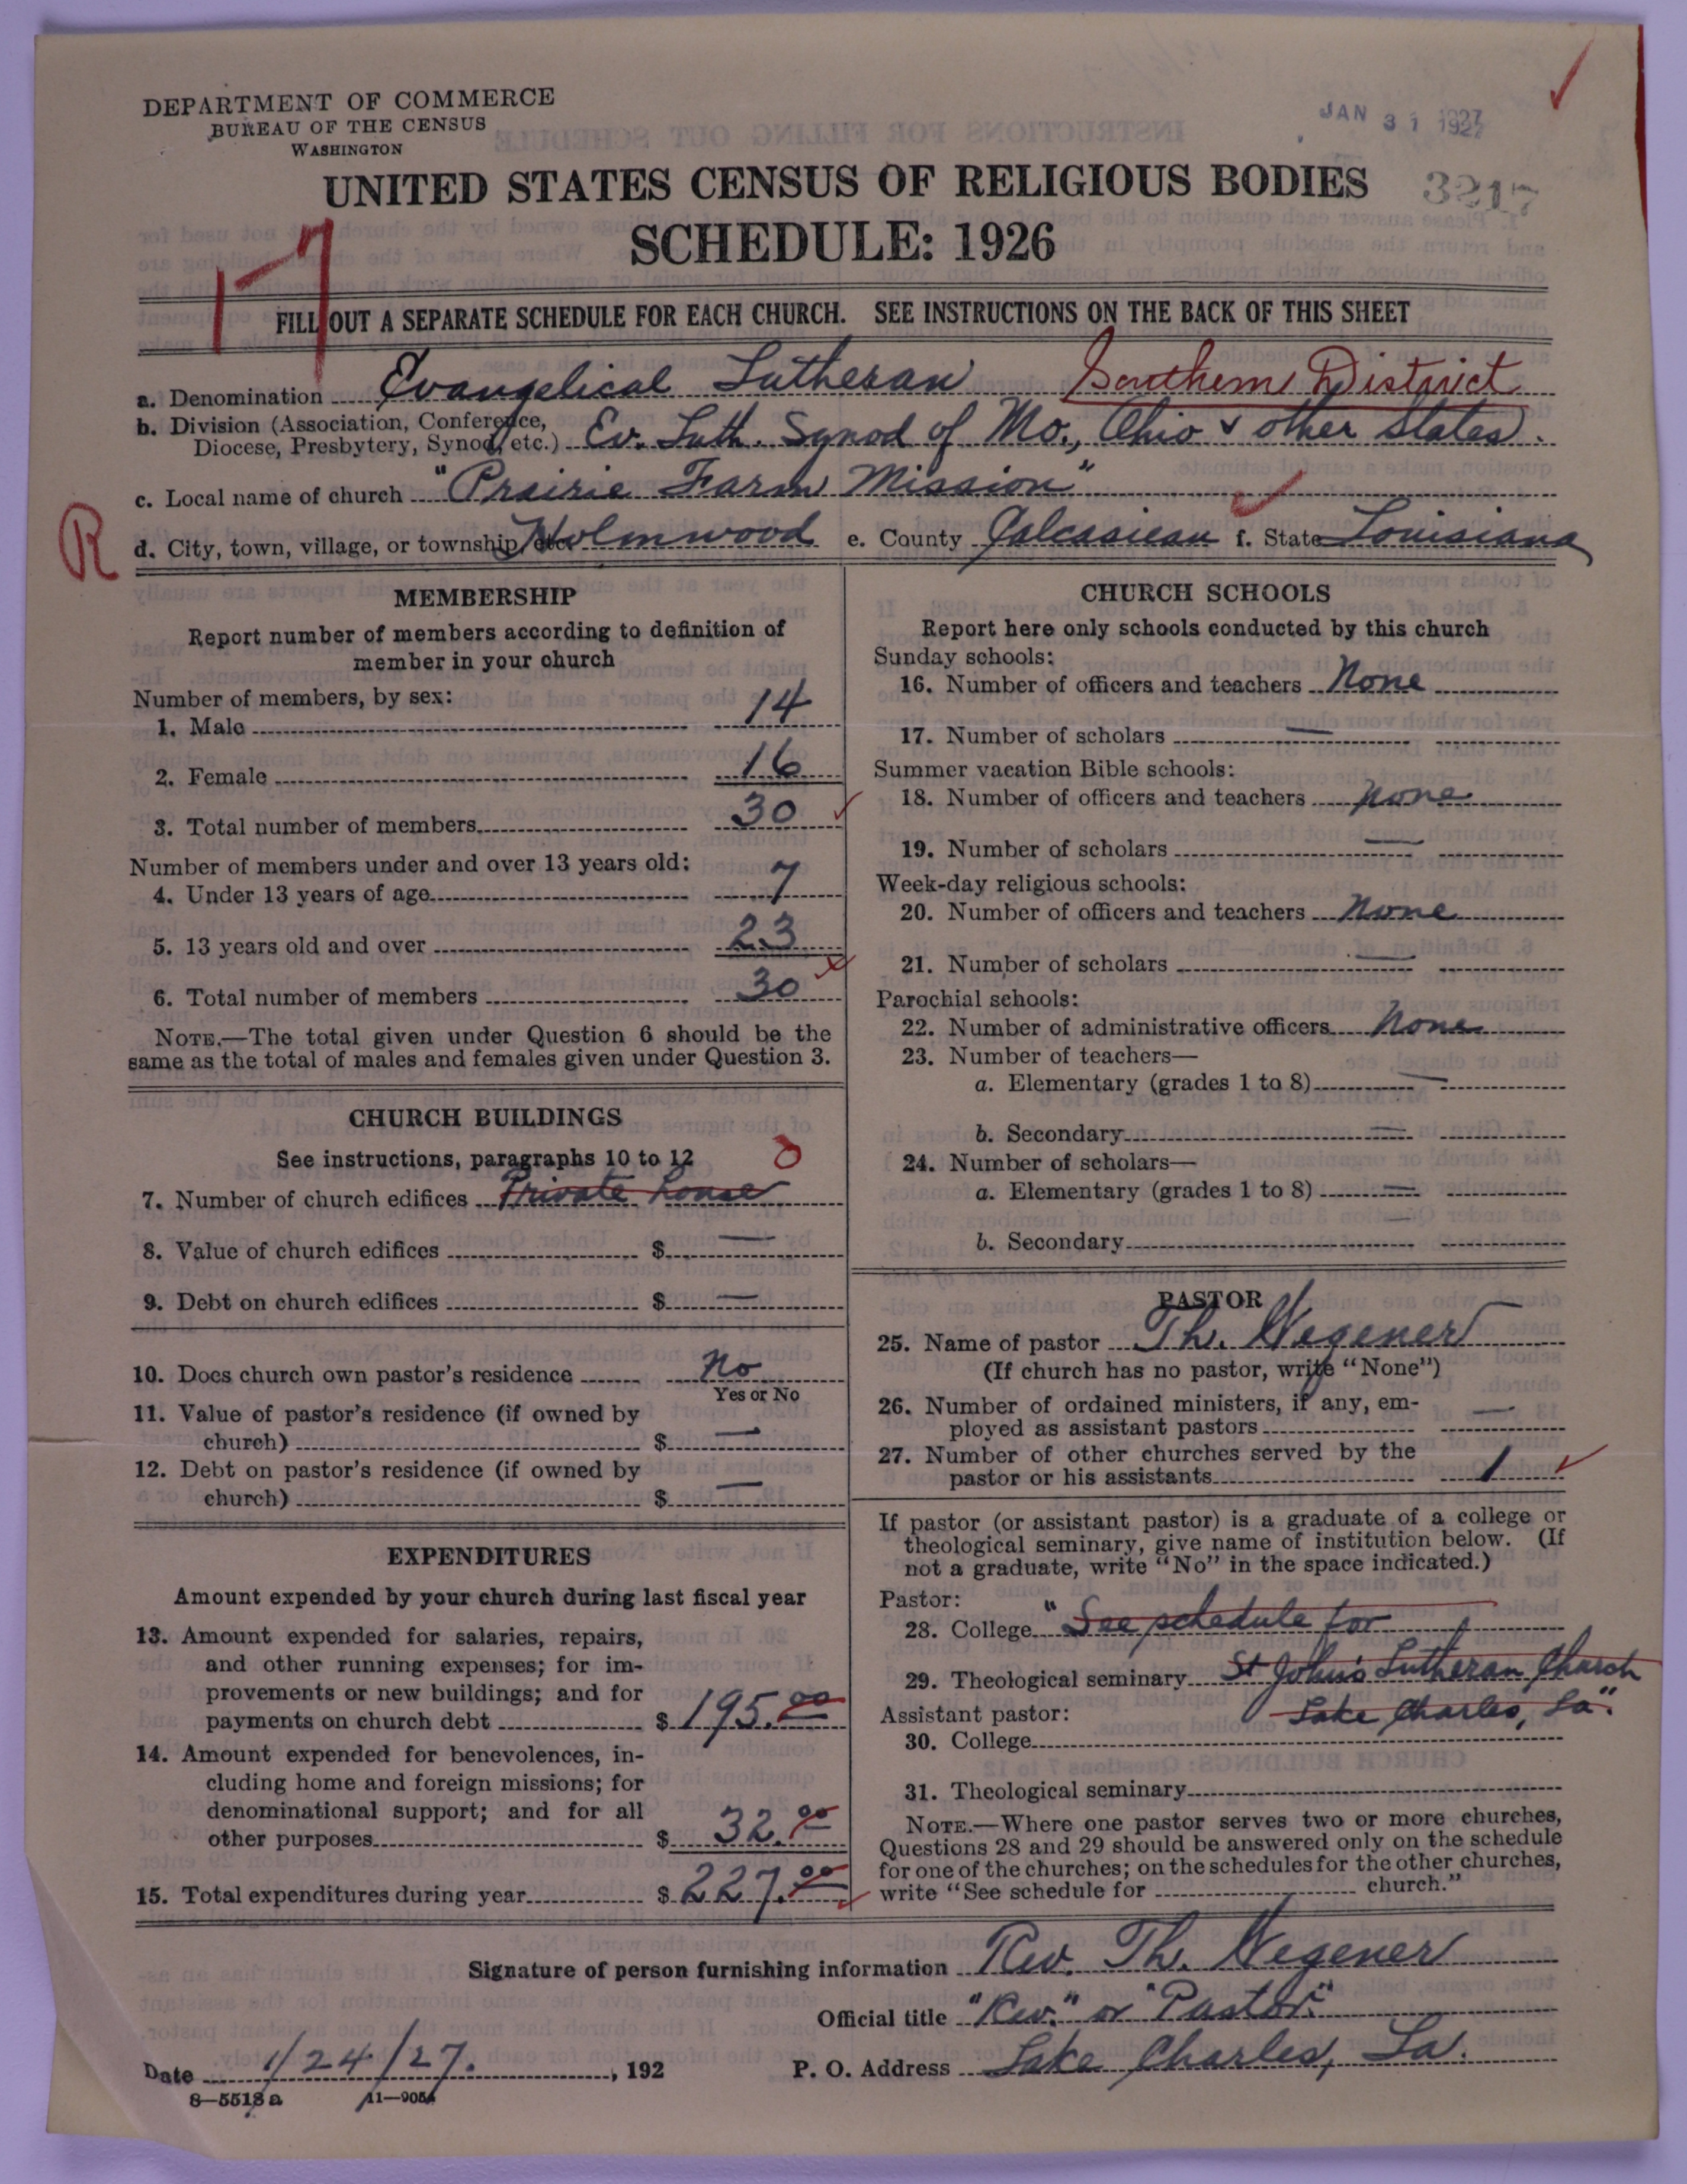 DEPARTMENT OF COMMERCE
BUREAU OF THE CENSUS
WASHINGTON
JAN 31 1927
UNITED STATES CENSUS OF RELIGIOUS BODIES
3217
SCHEDULE: 1926
17
FILL OUT A SEPARATE SCHEDULE FOR EACH CHURCH. SEE INSTRUCTIONS ON THE BACK OF THIS SHEET
a. Denomination Evangelical Lutheran Southern District
b. Division (Association, Conference,
Diocese, Presbytery, Synod, etc.) Ev. Luth. Synod of Mo., Ohio & other States.
c. Local name of church "Prairie Farm Mission"
R
d. City, town, village, or township, etc. Holmwood e. County Calcasieau f. State Louisiana
MEMBERSHIP
Report number of members according to definition of
member in your church
Number of members, by sex:
1. Male 14
2. Female 16
3. Total number of members 30
Number of members under and over 13 years old:
4. Under 13 years of age 7
5. 13 years old and over 23
6. Total number of members 30
NOTE.—The total given under Question 6 should be the
same as the total of males and females given under Question 3.
CHURCH BUILDINGS
See instructions, paragraphs 10 to 12 0
7. Number of church edifices Private house
8. Value of church edifices $ —
9. Debt on church edifices $ —
10. Does church own pastor's residence No
Yes or No
11. Value of pastor's residence (if owned by
church) $ —
12. Debt on pastor's residence (if owned by
church) $ —
EXPENDITURES
Amount expended by your church during last fiscal year
13. Amount expended for salaries, repairs,
and other running expenses; for im-
provements or new buildings; and for
payments on church debt $ 195.00
14. Amount expended for benevolences, in-
cluding home and foreign missions; for
denominational support; and for all
other purposes $ 32.00
15. Total expenditures during year $ 227.00
CHURCH SCHOOLS
Report here only schools conducted by this church
Sunday schools:
16. Number of officers and teachers None
17. Number of scholars —
Summer vacation Bible schools:
18. Number of officers and teachers None
19. Number of scholars —
Week-day religious schools:
20. Number of officers and teachers None
21. Number of scholars —
Parochial schools:
22. Number of administrative officers None
23. Number of teachers—
a. Elementary (grades 1 to 8) —
b. Secondary —
24. Number of scholars—
a. Elementary (grades 1 to 8) —
b. Secondary —
PASTOR
25. Name of pastor Th. Wegener
(If church has no pastor, write "None")
26. Number of ordained ministers, if any, em-
ployed as assistant pastors —
27. Number of other churches served by the
pastor or his assistants 1
If pastor (or assistant pastor) is a graduate of a college or
theological seminary, give name of institution below. (If
not a graduate, write "No" in the space indicated.)
Pastor:
28. College "See schedule for
29. Theological seminary St John's Lutheran Church
Assistant pastor: Lake Charles, La".
30. College
31. Theological seminary
NOTE.—Where one pastor serves two or more churches,
Questions 28 and 29 should be answered only on the schedule
for one of the churches; on the schedules for the other churches,
write "See schedule for church."
Signature of person furnishing information Rev. Th. Wegener
Official title "Rev." or "Pastor."
Date 1/24/27. , 192
P. O. Address Lake Charles, La.
8—5518 a 11—9054